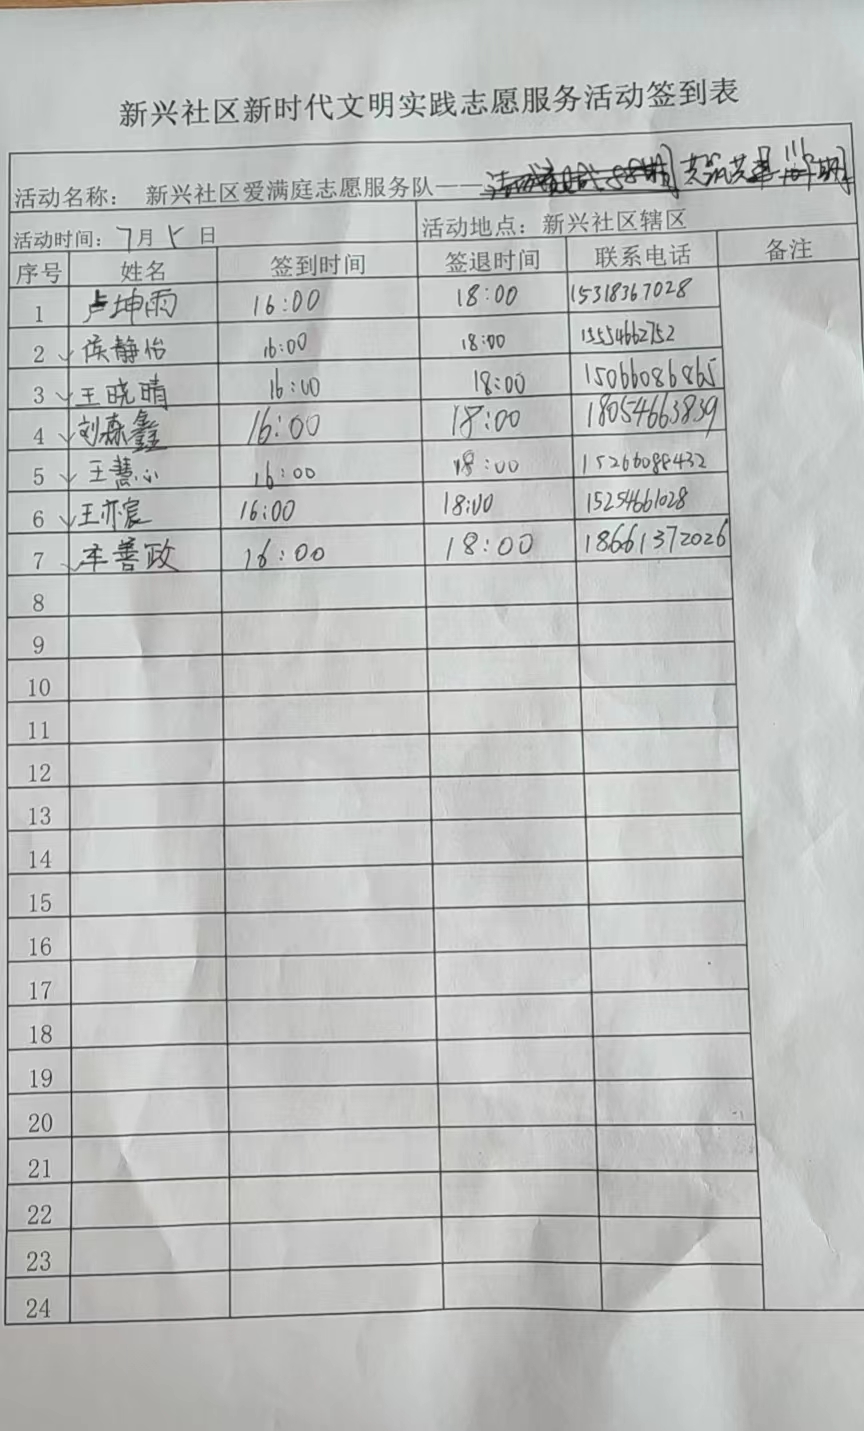 新兴社区新时代文明实践志愿服务活动签到表
活动名称： 新兴社区爱满庭志愿服务队——
活动时间：7月5日 活动地点：新兴社区辖区
序号 姓名 签到时间 签退时间 联系电话 备注
1 卢坤雨 16:00 18:00 15318367028
2 侯静怡 16:00 18:00 15554662752
3 王晓晴 16:00 18:00 15066086865
4 刘森鑫 16:00 18:00 18054663839
5 王慧心 16:00 18:00 15266088432
6 王亦宸 16:00 18:00 15254661028
7 车善政 16:00 18:00 18661372026
8
9
10
11
12
13
14
15
16
17
18
19
20
21
22
23
24